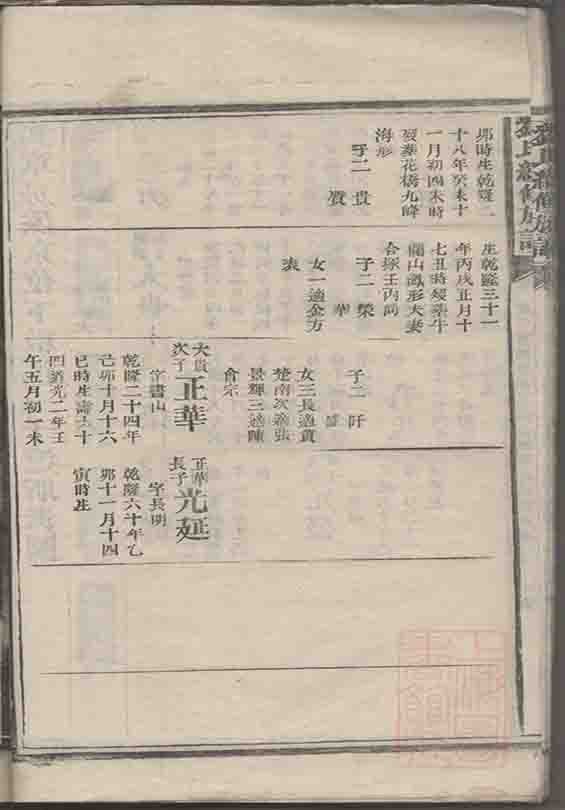 卯時生乾隆二
十八年癸未十
一月初四未時
歿葬花橋九峰
海形
子二 貴
賢
生乾隆三十一
年丙戌五月十
七丑時歿葬牛
欄山鳳形夫妻
合塚壬丙向
子二 榮
華
女一適金方
表
子二 阡
女三長適黃
楚南次適張
景輝三適陳
會宗
大貴
次子 正華
字書山
乾隆二十四年
己卯十月十六
巳時生壽六十
四道光二年壬
午五月初一未
正華
長子 光延
字長明
乾隆六十年乙
卯十一月十四
寅時生
上海圖
書館